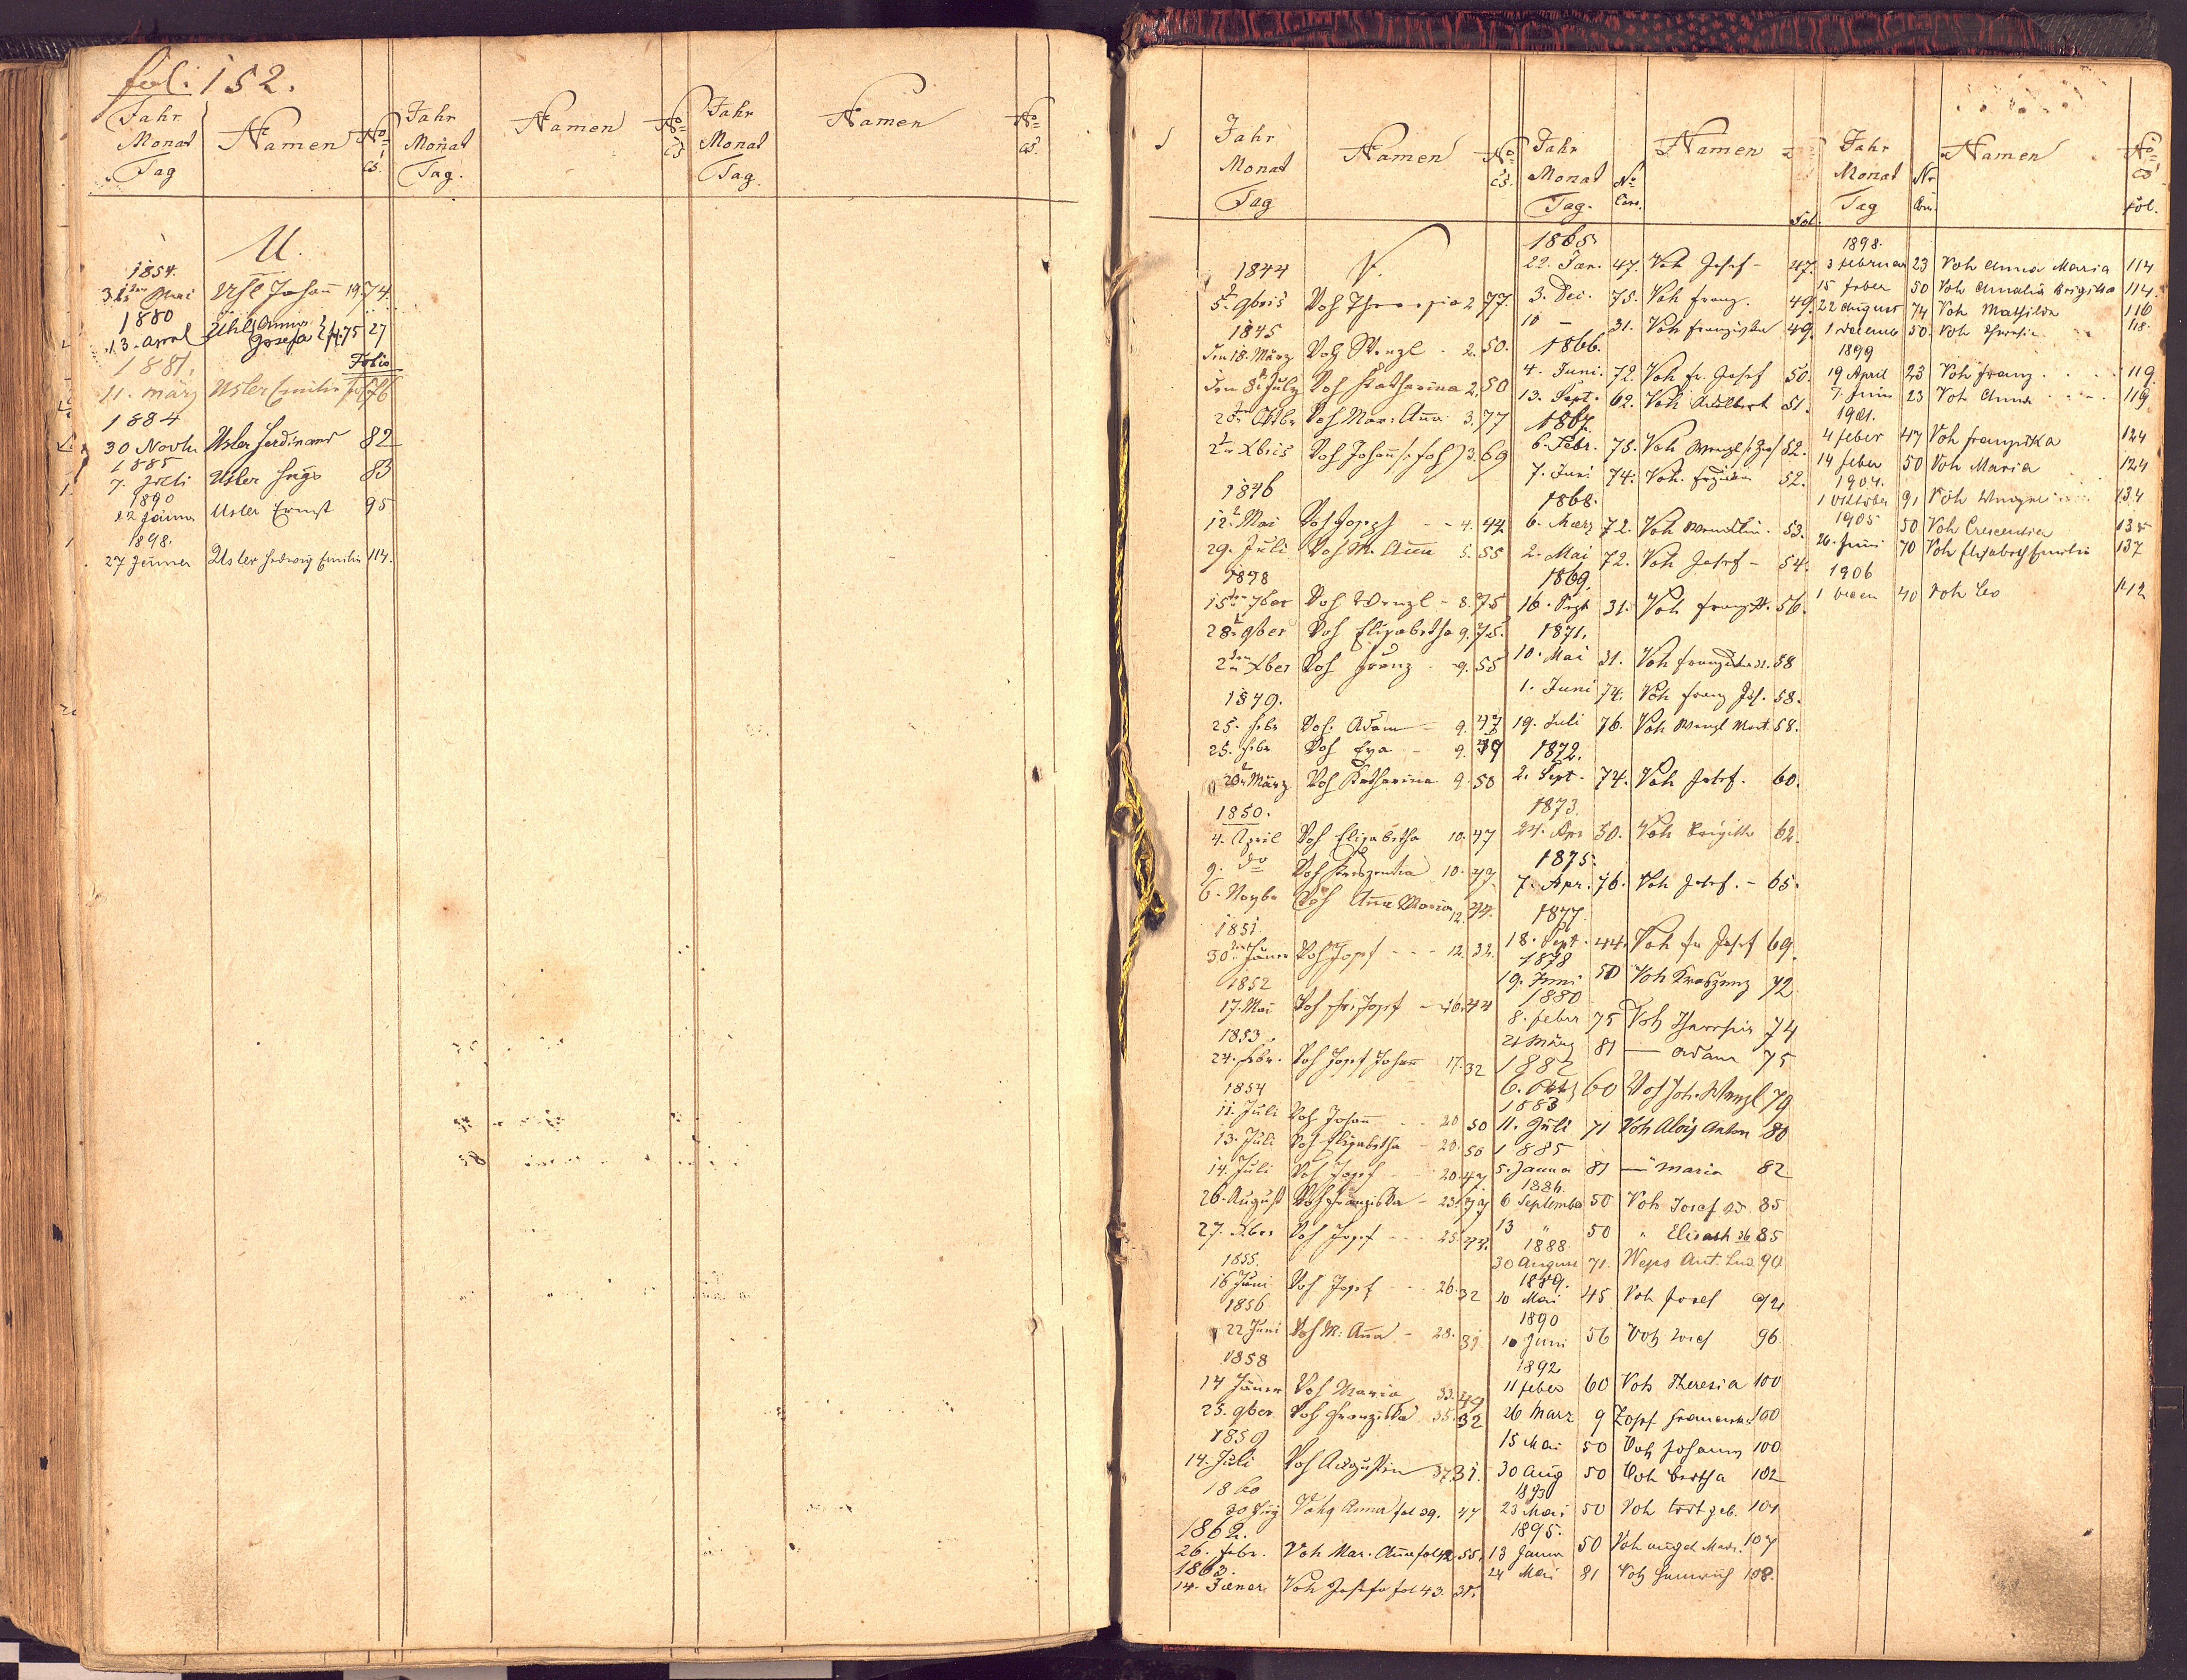 fol: 152.
Jahr Monat Tag
Namen
No CS.
Jahr Monat Tag.
Namen
No CS
Jahr Monat Tag.
Namen
No CS.
U.
1854.
Uhl Johann 19. 74.
1880
13. April Uhl Anna Josefa 75 27
1881. Folio
11. März Usler Emilie 76
1884
30 Novbr Usler Ferdinand 82
1885
7. Juli Usler Hugo 83
1890
22 Jänner Usler Ernst 95
1898.
27 Jänner Usler Hedwig Emilie 114.
Jahr Monat Tag
Namen
No CS.
Jahr Monat Tag.
No Cons.
Namen
Fol.
Jahr Monat Tag
Nr Con.
Namen
No CS
fol.
V.
1844
5. 9bris Voh Theresia 2 77.
1845
den 18. März Voh Wenzl - 2. 50.
den 8. July Voh Katharina 2. 50
28. Oktbr Voh Mar: Anna 3. 77
2 Xbris Voh Johann 3. 69
1846
12. Mai Voh Joseph - - 4. 44.
29. Juli Voh M. Anna 5. 55
1848
15ten 7ber Voh Wenzl - 8. 75
28. 9ber Voh Elisabetha 9. 75.
2ten Xber Voh Franz - 9. 55
1849.
25. Febr Voh Adam - 9. 47
25. Febr Voh Eva - 9.
28. März Voh Katharina 9. 50
1850.
4. April Voh Elisabetha 10. 47
9. do Voh Kreszentia 10. 47.
6. Novbr Voh Anna Maria 12. 74.
1851.
30 Jäner Voh Josef - - - 12. 32.
1852
17. Mai Voh Josef - 16. 44
1853.
24. Febr. Voh Josef Johann 17. 32
1854
11. Juli Voh Johann - - 20 50
13. Juli Voh Elisabetha - 20. 50
14. Juli Voh Josef - 20. 47.
26. August Voh Franziska - 23.
27. Xber Voh Josef - - - 25. 44.
1855.
16 Juni Voh Josef - - - 26. 32
1856
22 Juni Voh M: Anna - 28. 31
1858
14 Jäner Voh Maria 33. 49
25. 9ber Voh Franziska 35. 32
1859
14. Juli Voh Augustin 37 31.
1860
Anna fol 39. 47
1862.
26. Febr. Voh Mar. Anna fol 42. 55.
1863.
14. Jäner Voh Josefa fol 43. 31.
1865
22. Jan. 47. Voh Josef - 47.
3. Dec. 75. Voh Franz. 49.
10 - 31. Voh Franziska 49.
1866.
4. Juni. 72. Voh Fr. Josef 50.
13. Sept. 62. Voh Adalbert 51.
1867.
6. Febr. 78. Voh Wenzl 52.
7. Juni 74. Voh 52.
1868.
6. März 72. Voh Wendelin. 53.
2. Mai 72. Voh Josef - 54.
1869.
16. Sept. 31. Voh 56.
1871.
10. Mai 31. Voh 58
1. Juni 74. Voh Franz Jos. 58.
19. Juli 76. Voh Wenzl Mart. 58.
1872.
2. Sept. 74. Voh Josef. 60.
1873.
24. Apr 50. Voh Brigitta 62.
1875.
7. Apr. 76. Voh Josef. - 65.
1877.
18. Sept. 44. Voh Fr Josef 69.
1878
19. Juni 50 Voh Kreszenz 72
1880
8. Feber 75 Voh Theresia 74
21 März 81 — Adam 75
1882
6. 60 Voh Joh. Wenzl 79
1883
11. Juli 71 Voh Alois Anton 80
1885
5. Jänner 81 — Maria 82
1886.
6 September 50 Voh Josef 25. 85
13 " 50 " Elisabth 26 85
1888.
30 August 71. Weps Ant. Lud. 90
1889.
10 Mai 45 Voh Josef 92
1890
10 Juni 56 Voh Josef 96.
1892
11 Feber 60 Voh Theresia 100
26 März 9 Zopf Franziska 100
15 Mai 50 Voh Johann 100
30 Aug 50 Voh Bertha 102
1893
23 Mai 50 Voh todt geb. 104
1895.
13 Jänner 50 Voh 107
24 Mai 81 Voh Heinrich 108.
1898.
3 Februar 23 Voh Anna Maria 114
15 Feber 50 Voh Amalia Brigitta 114.
22 August 74 Voh Mathilda 116
1 Decemb 50 Voh Theresia 118.
1899
19 April 23 Voh Franz . . . 119.
7. Juni 23 Voh Anna . . . . 119
1901.
4 Feber 47 Voh Franziska 124
14 Feber 50 Voh Maria 124
1904.
1 Oktober 91 Voh 134
1905
50 Voh Crescentia 135
26. Juni 70 Voh Elisabeth Emilie 137
1906
1 Decem 40 Voh Leo 142